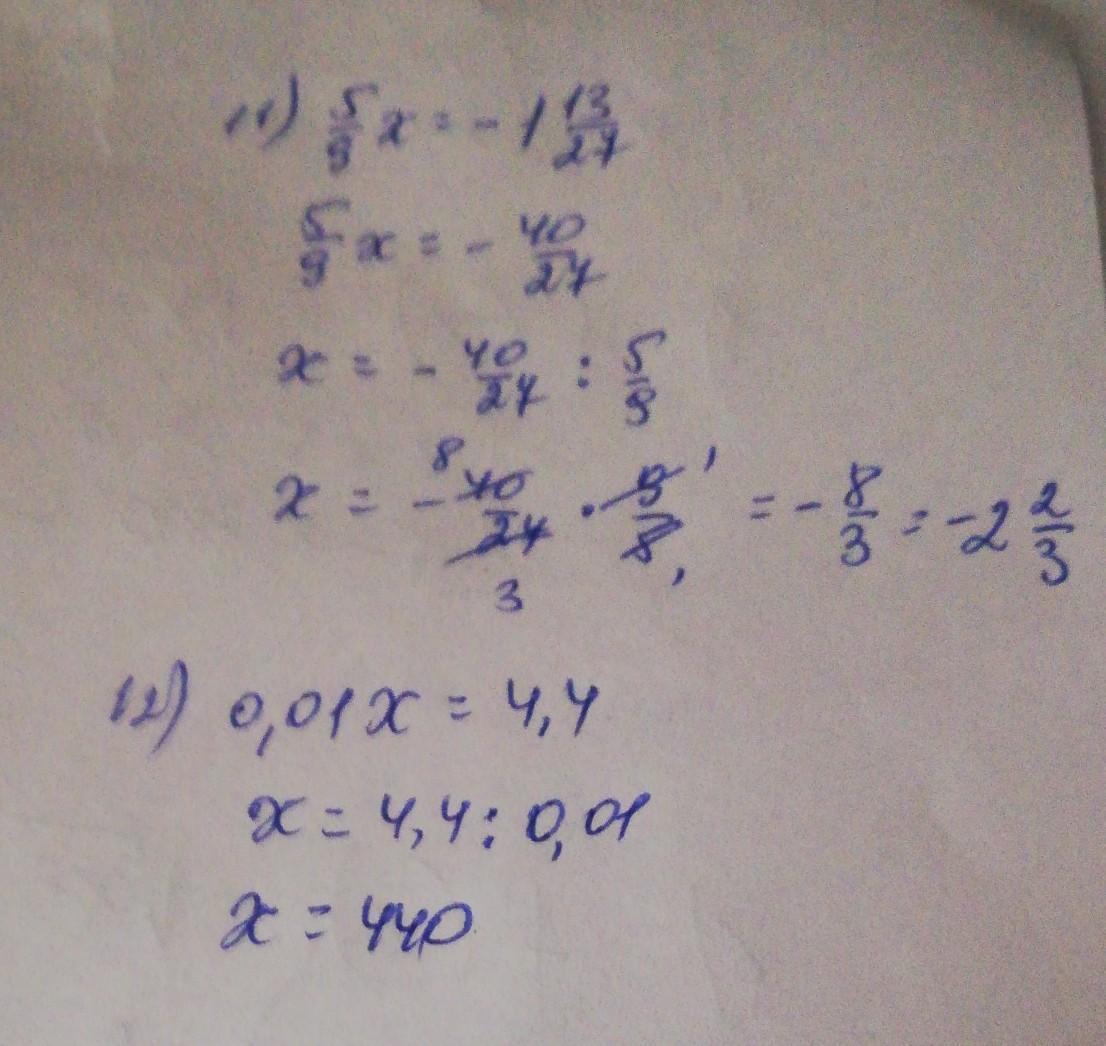 11) 5/9 x = - 1 13/27
5/9 x = - 40/27
x = - 40/27 : 5/9
x = - 8 40/27 3 · 9/8 1 1 = - 8/3 = -2 2/3
12) 0,01x = 4,4
x = 4,4 : 0,01
x = 440